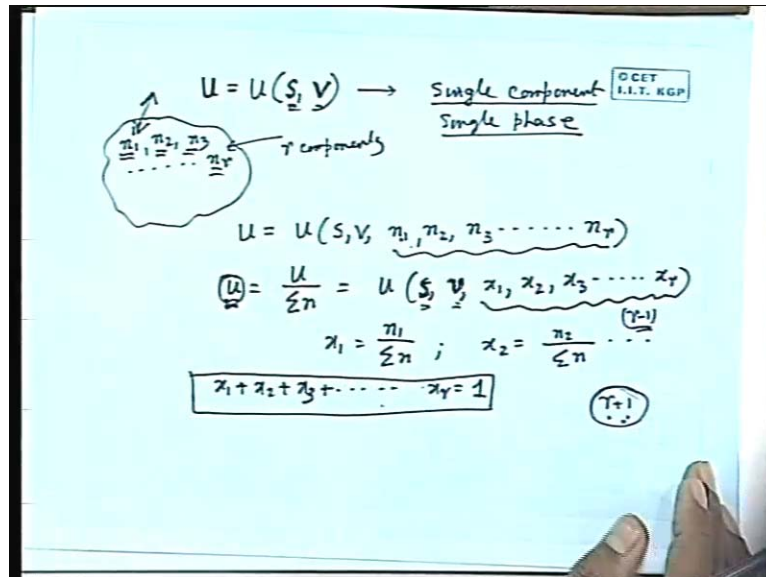 U = U(S, V) → Single component
Single phase
© CET
I.I.T. KGP
n₁, n₂, n₃
....... nᵣ
r components
U = U(S, V, n₁, n₂, n₃ ...... nᵣ)
u = U/Σn = u(s, v, x₁, x₂, x₃ ..... xᵣ)
(r-1)
x₁ = n₁/Σn ; x₂ = n₂/Σn ...
x₁ + x₂ + x₃ + ...... xᵣ = 1
r+1